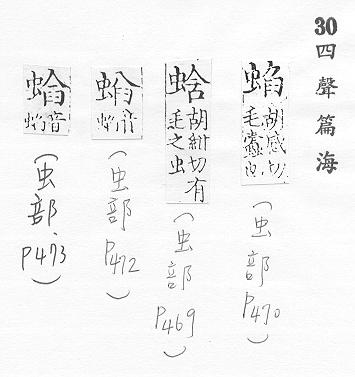 30四聲篇海
蜭
胡感切
毛蠹也
(虫部P470)
胡紺切有
毛之虫
(虫部P469)
音
(虫部P472)
音
(虫部.P473)